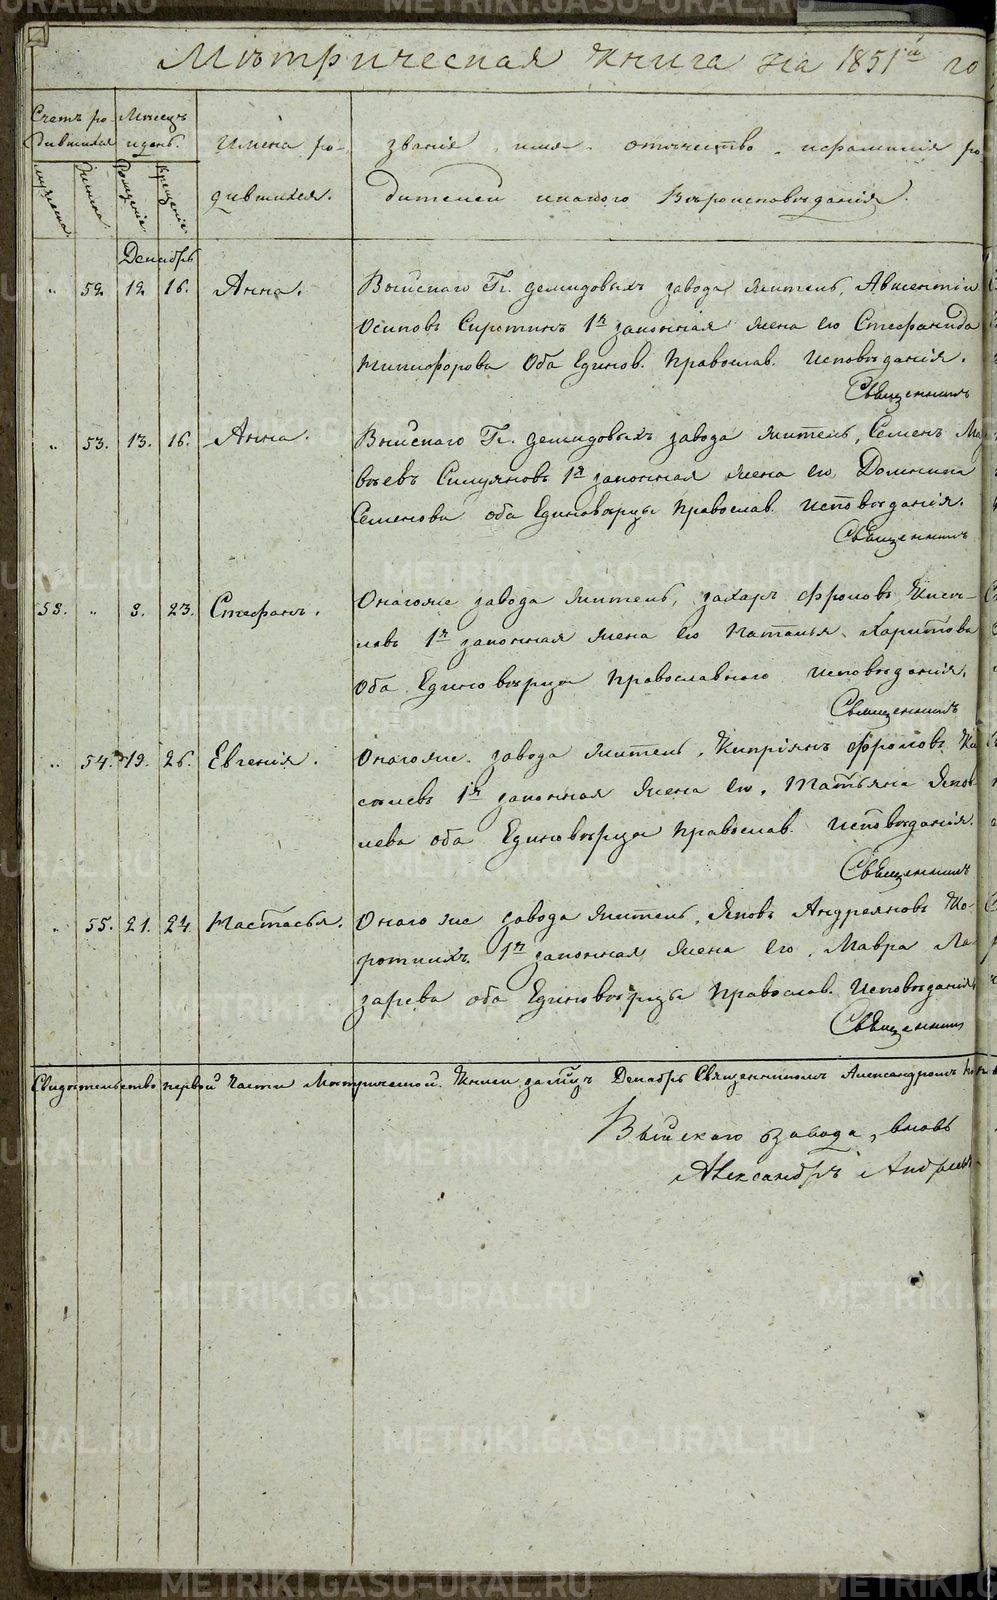 Метрическая книга на 1851й го
Счетъ ро- Месяцъ
дившихся и день. Имена ро- званiя, имя, отечество, и фамилiя ро-
Мужеска. Женска. Рожденiе Крещенiе дившихся. дителей и какого Вѣроисповѣданiя.
Декабрь
" 52 12 16. Анна. Выйскаго Гг. Демидовыхъ завода житель, Авксентiй
Осиповъ Сиротинъ 1я законная жена его Стефанида
Никифорова Оба Единов. Православ. Исповѣданiя.
Священникъ
" 53. 13. 16. Анна. Выйскаго Гг. Демидовыхъ завода житель, Семенъ Мат
вѣевъ Силуяновъ 1я законная жена его Домникiя
Семенова оба Единовѣрцы Православ. Исповѣданiя.
Священникъ
53. " 8. 23. Стефанъ. Онагоже завода житель, Захаръ Фроловъ Кисе-
левъ 1я законная жена его Наталья Харитова
Оба Единовѣрцы Православнаго Исповѣданiя.
Священникъ
" 54. 19. 26. Евгенiя. Онагоже завода житель, Кипрiянъ Фроловъ Ки
селевъ 1я законная жена его, Татьяна Яков-
лева оба Единовѣрцы Православ. Исповѣданiя.
Священникъ
" 55. 21. 24. Настасья. Онаго же завода житель, Яковъ Андреяновъ Ко-
роткихъ 1я законная жена его, Мавра Ла-
зарева оба Единовѣрцы Православ. Исповѣданiя
Священник
Свидетельство первой части Метрической Книги за Декабрь Священникомъ Александромъ
Выйскаго Завода, вновь
Александръ Андреевъ
METRIKI.GASO-URAL.RU